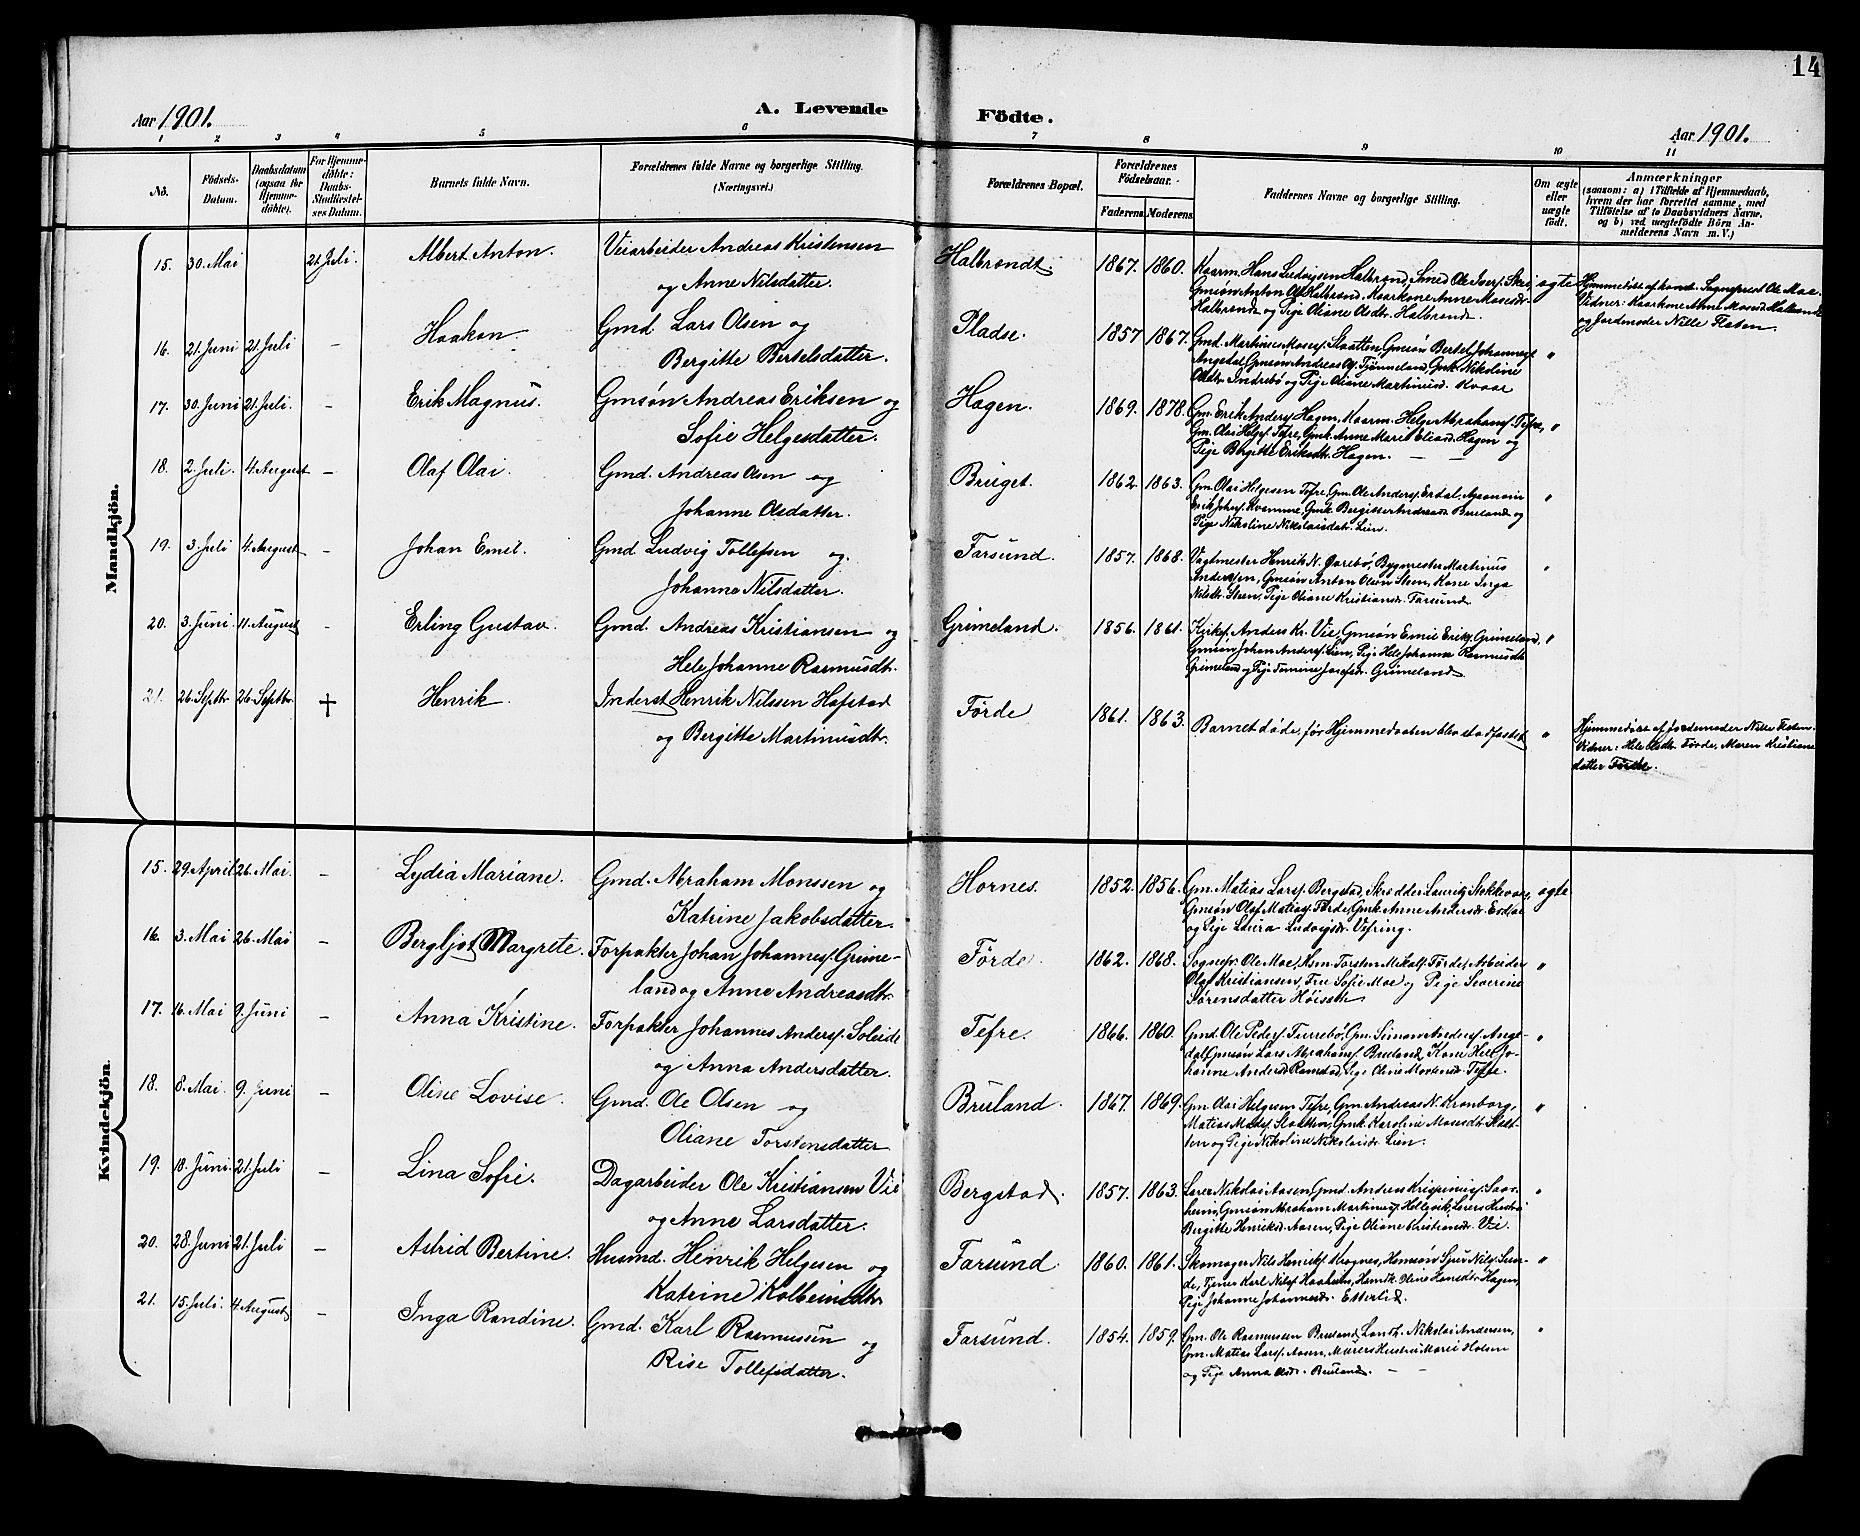 14
Aar 1901. A. Levende Födte. Aar 1901.
1 2 3 4 5 6 7 8 9 10 11
No. Födsels-Datum. Daabsdatum (ogsaa for Hjemmedöbte). For Hjemmedöbte: Daabs-Stadfæstelses Datum. Barnets fulde Navn. Forældrenes fulde Navne og borgerlige Stilling. (Næringsvei.) Forældrenes Bopæl. Forældrenes Födselsaar. Faderens. Moderens. Faddernes Navne og borgerlige Stilling. Om ægte eller uægte födt. Anmærkninger (saasom: a) i Tilfælde af Hjemmedaab, hvem der har forrettet samme, med Tilföielse af to Daabsvidners Navne, og b) ved uægtefödte Börn Anmelderens Navn m. V.)
Mandkjön.
15. 30. Mai 21. Juli. Albert Anton. Veiarbeider Andreas Kristensen og Anne Nilsdatter. Halbrendt. 1867. 1860. Kaarm. Hans Ludvigsen Halbrend, Smed Ole Iversf. Skei
Gmsøn Anton Olsf. Halbrend, Kaarkone Anne Mosesdr.
Halbrend og Pige Oliane Olsdtr. Halbrend. ægte Hjemmedöbt af konst. Sognepræst Ole Moe.
Vidner: Kaarkone Anne Mosesd. Halbrend
og Jordmoder Nille Flaten.
16. 21. Juni 21. Juli – Haakon. Gmd. Lars Olsen og Bergitte Bertelsdatter. Pladse. 1857 1867. Gmd. Martinus Mosesf. Slaatten, Gmsøn Bertel Johannesf.
Angedal, Gmsøn Andreas Olsf. Tjønneland, Gmk. Nikoline
Olsdtr. Indrebö og Pige Oliane Martinusd. Kvaae "
17. 30. Juni 21. Juli. – Erik Magnus. Gmsøn Andreas Eriksen og Sofie Helgesdatter. Hagen. 1869. 1878. Gm. Erik Andersf. Hagen, Kaarm. Helge Abrahamsf. Tefre,
Gm. Olai Helgesf. Tefre, Gmk. Anne Marie Eliasd. Hagen og
Pige Bergitte Eriksdtr. Hagen. "
18. 2. Juli. 4. August – Olaf Olai. Gmd. Andreas Olsen og Johanne Olsdatter. Bruget. 1862. 1863. Gm. Olai Helgesen Tefre, Gm. Ole Andersf. Erdal, Agronom
Erik Johsf. Kvamme, Gmk. Bergitte Andreasd. Bruland og
Pige Nikoline Nikolaisdatr. Lien. "
19. 3. Juli 4. August – Johan Emil. Gmd Ludvig Tollefsen og Johanne Nilsdatter. Farsund. 1857. 1868. Vagtmester Henrik N. Övrebö, Bygmester Martinus
Andersen, Gmsøn Anton Olsen Steen, Kone Inga
Nilsdr. Steen, Pige Oliane Kristiansdr. Farsund "
20. 3. Juni 11. August – Erling Gustav. Gmd. Andreas Kristiansen og Hele Johanne Rasmusdt. Grimeland. 1856. 1861. Kirkes. Anders Kr. Vie, Gmsøn Emil Eriksf. Grimeland,
Gmsøn Johan Andersf. Lien, Pige Hele Johanne Rasmusdt.
Grimeland og Pige Josefdr. Grimeland "
21. 26. Septbr 26. Septbr. + Henrik. Inderst Henrik Nilssen Hafstad og Bergitte Martinusdtr. Förde 1861. 1863. Barnet döde, för Hjemmedaaben blev stadfæstet " Hjemmedöbt af Jordemoder Nille Flaten.
Vidner: Hele Olsdt. Förde, Maren Kristians-
datter Förde.
Kvindekjön.
15. 29. April. 26. Mai. – Lydia Mariane. Gmd. Abraham Monssen og Katrine Jakobsdatter. Hornes. 1852. 1856. Gm. Matias Larsf. Bergstad, Skrædder Lauritz Stokkevaag,
Gmsøn Olaf Matiasf. Förde, Gmk. Anne Andersdr. Erdal
og Pige Laura Ludvigsdr. Vefring. ægte
16. 3. Mai 26. Mai – Bergljot Margrete. Forpakter Johan Johannesf. Grime-
land og Anne Andreasdtr. Förde. 1862. 1868. Sognepr. Ole Moe, Hsm. Torsten Mikalf. Förde, Arbeider
Olaf Kristiansen, Frue Sofie Moe og Pige Severine
Sörensdatter Höiseth "
17. 16. Mai 9. Juni – Anna Kristine. Forpakter Johannes Andersf. Soleide og Anna Andersdatter. Tefre. 1866. 1860. Gmd. Ole Pedersf. Furrebö, Gm. Simon Andersf. Ange-
dal, Gmsøn Lars Abrahamsf. Bruland, Kone Hele Jo-
hanne Andersd. Ramstad, Pige Oline Mortensd. Tefre. "
18. 8. Mai. 9. Juni – Oline Lovise. Gmd. Ole Olsen og Oliane Torstensdatter Bruland. 1867. 1869. Gm. Olai Helgesen Tefre, Gm. Andreas N. Kronborg,
Matias Mosesf. Slaatten, Gmk. Karoline Mosesdt. Slaat-
ten og Pige Nikoline Nikolaisdr. Lien. "
19. 18. Juni. 21. Juli – Lina Sofie. Dagarbeider Ole Kristiansen Vie og Anne Larsdatter. Bergstad. 1857. 1863. Lærer Nikolai Aasen, Gmd. Andreas Krispinusf. Saar-
heim, Gmsøn Abraham Martinusf. Hellevik, Lærers Hustru
Bergitte Henriksd. Aasen, Pige Oliane Kristiansd. Vie. "
20. 28. Juni 21. Juli – Astrid Bertine. Husmd. Henrik Helgesen og Katrine Kolbeinsdtr. Farsund. 1860. 1861. Skomager Nils Henriksf. Krognes, Hsmsøn Sjur Nilsf. Sun-
de, Tjener Karl Nilsf. Haaheim, Hsmdk. Oline Hansdtr. Hagen,
Pige Johanne Johannesdr. Etterlid. "
21. 15. Juli. 4. August – Inga Randine. Gmd. Karl Rasmussen og Rise Tollefsdatter. Farsund. 1854. 1859. Gm. Ole Rasmussen Bruland, Landh. Nikolai Andersen,
Gm. Matias Larsf. Aasen, Murers Hustru Marie Holsen
og Pige Anna Olsdr. Bruland. "